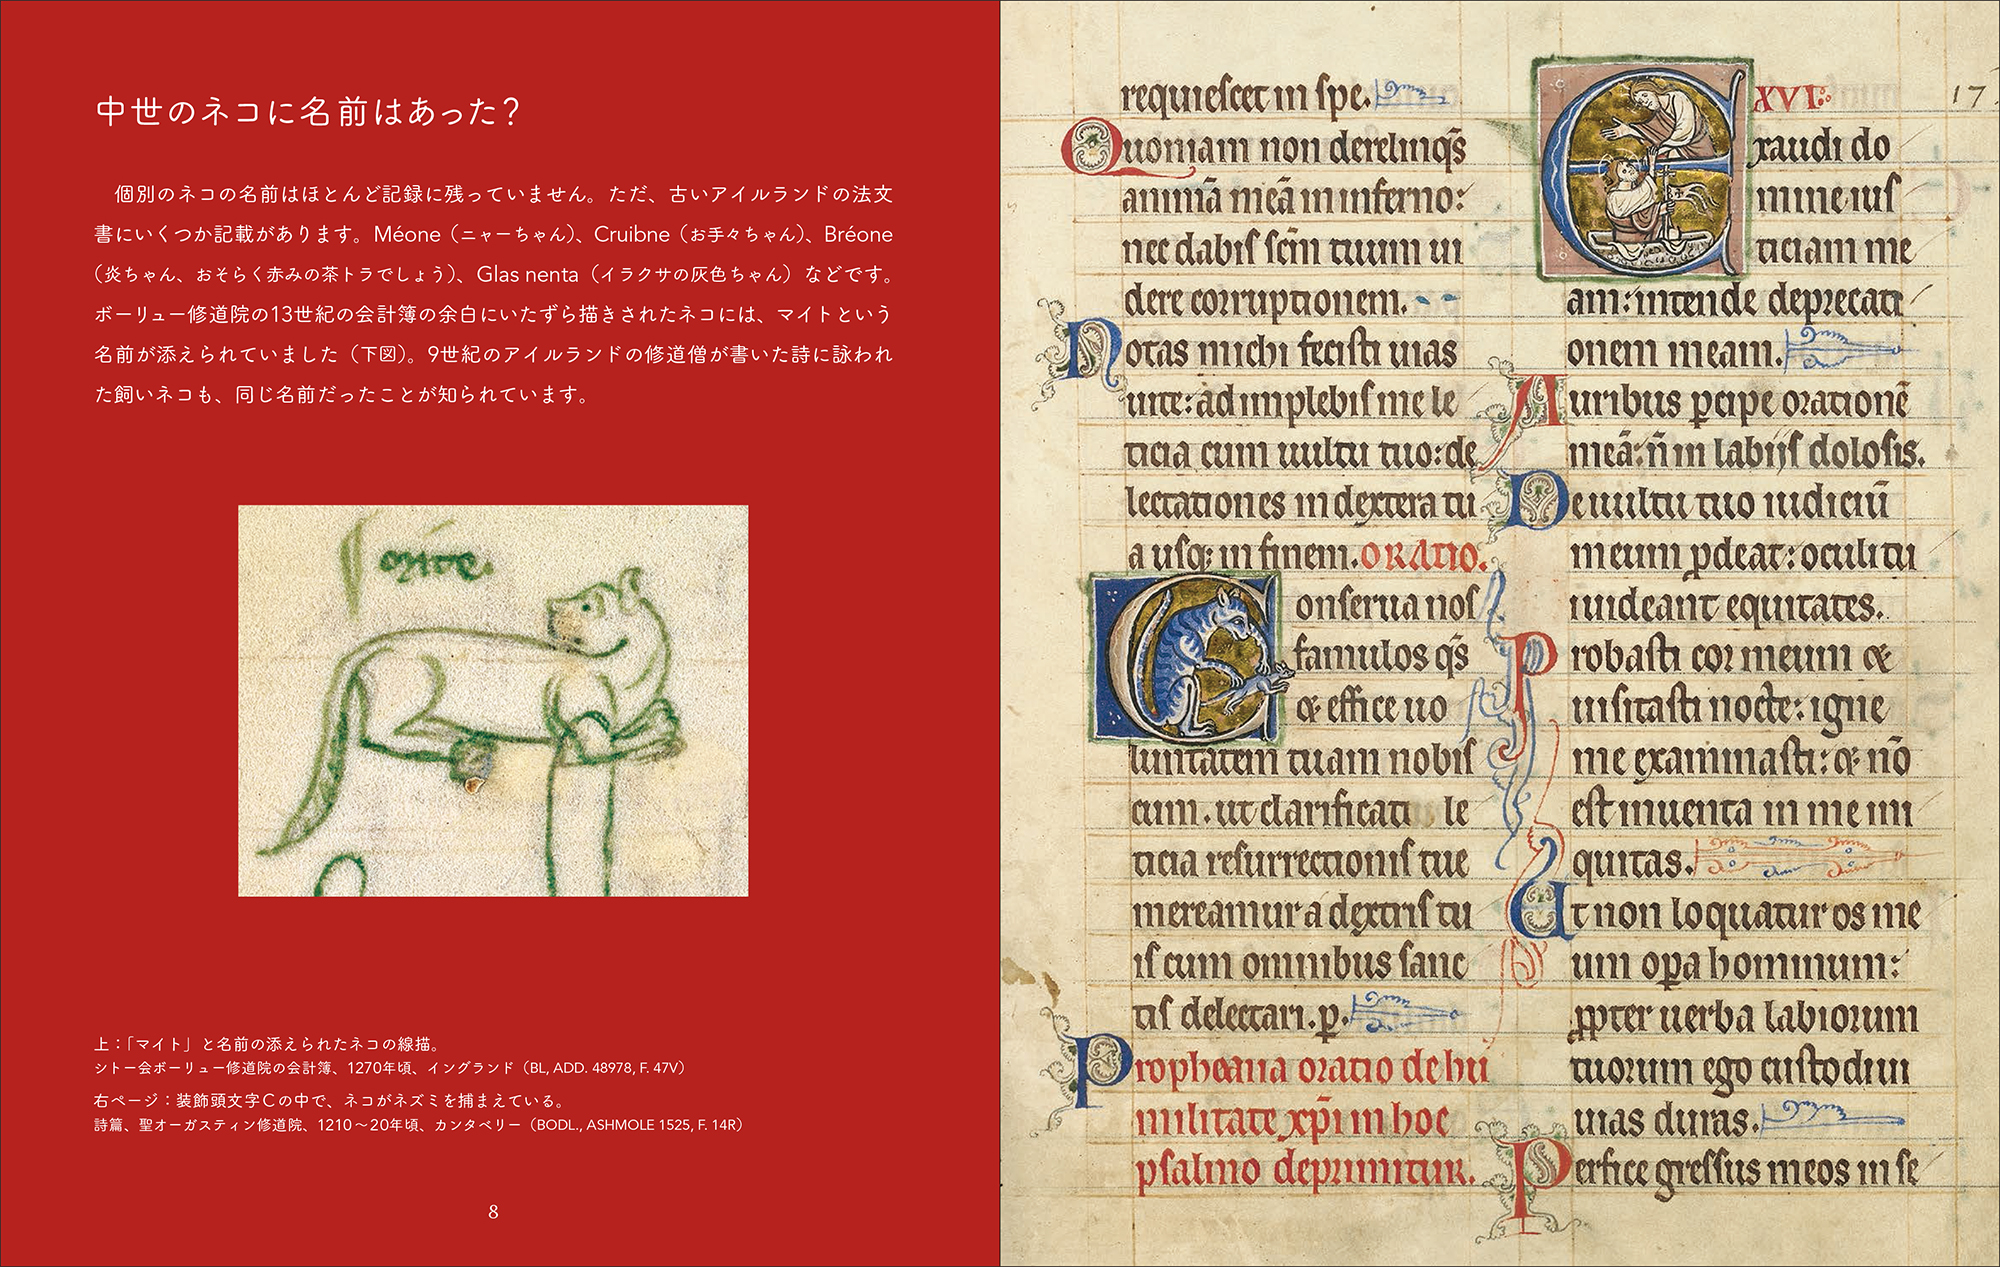 中世のネコに名前はあった？
個別のネコの名前はほとんど記録に残っていません。ただ、古いアイルランドの法文
書にいくつか記載があります。Méone（ニャーちゃん）、Cruibne（お手々ちゃん）、Bréone
（炎ちゃん、おそらく赤みの茶トラでしょう）、Glas nenta（イラクサの灰色ちゃん）などです。
ボーリュー修道院の13世紀の会計簿の余白にいたずら描きされたネコには、マイトという
名前が添えられていました（下図）。9世紀のアイルランドの修道僧が書いた詩に詠われ
た飼いネコも、同じ名前だったことが知られています。
mite.
上：「マイト」と名前の添えられたネコの線描。
シトー会ボーリュー修道院の会計簿、1270年頃、イングランド（BL, ADD. 48978, F. 47V）
右ページ：装飾頭文字Ｃの中で、ネコがネズミを捕まえている。
詩篇、聖オーガスティン修道院、1210〜20年頃、カンタベリー（BODL., ASHMOLE 1525, F. 14R）
8
requiescet in spe.
Quoniam non derelinq̄s
animā meā in inferno:
nec dabis scm̄ tuum ui
dere corruptionem.
Notas michi fecisti uias
uite: adimplebis me le
ticia cum uultu tuo: de
lectationes in dextera tu
a usq; in finem. ORATIO.
Conserua nos
famulos q̄s
& effice uo
luntatem tuam nobis
cum. ut clarificati le
ticia resurrectionis tue
mereamur a dextris tu
is cum omnibus sanc
tis delectari. p.
Prophetia oratio de hu
militate xp̄i in hoc
psalmo deprimitur.
XVI.
17.
Exaudi do
mine ius
ticiam me
am: intende deprecati
onem meam.
Auribus ꝑcipe orationē
meā: n̄ in labiis dolosis.
De uultu tuo iudiciū
meum ꝓdeat: oculi tu
i uideant equitates.
Probasti cor meum &
uisitasti nocte: igne
me examinasti: & nō
est inuenta in me ini
quitas.
Ut non loquatur os me
um oꝑa hominum:
ꝓpter uerba labiorum
tuorum ego custodiui
uias duras.
Perfice gressus meos in se